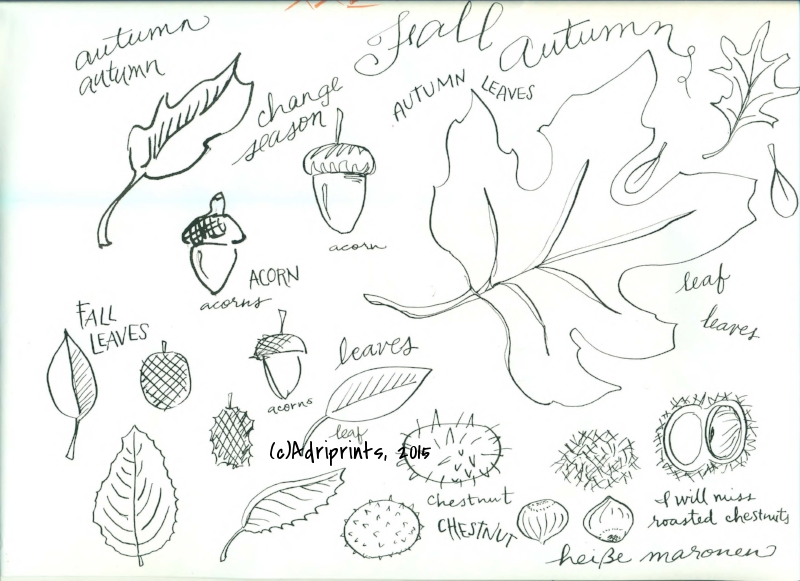 autumn
autumn
Fall
autumn
AUTUMN LEAVES
change
season
acorn
ACORN
acorns
leaf
leaves
FALL
LEAVES
leaves
acorns
leaf
(c)Adriprints, 2015
chestnut
CHESTNUT
I will miss
roasted chestnuts
heiße maronen